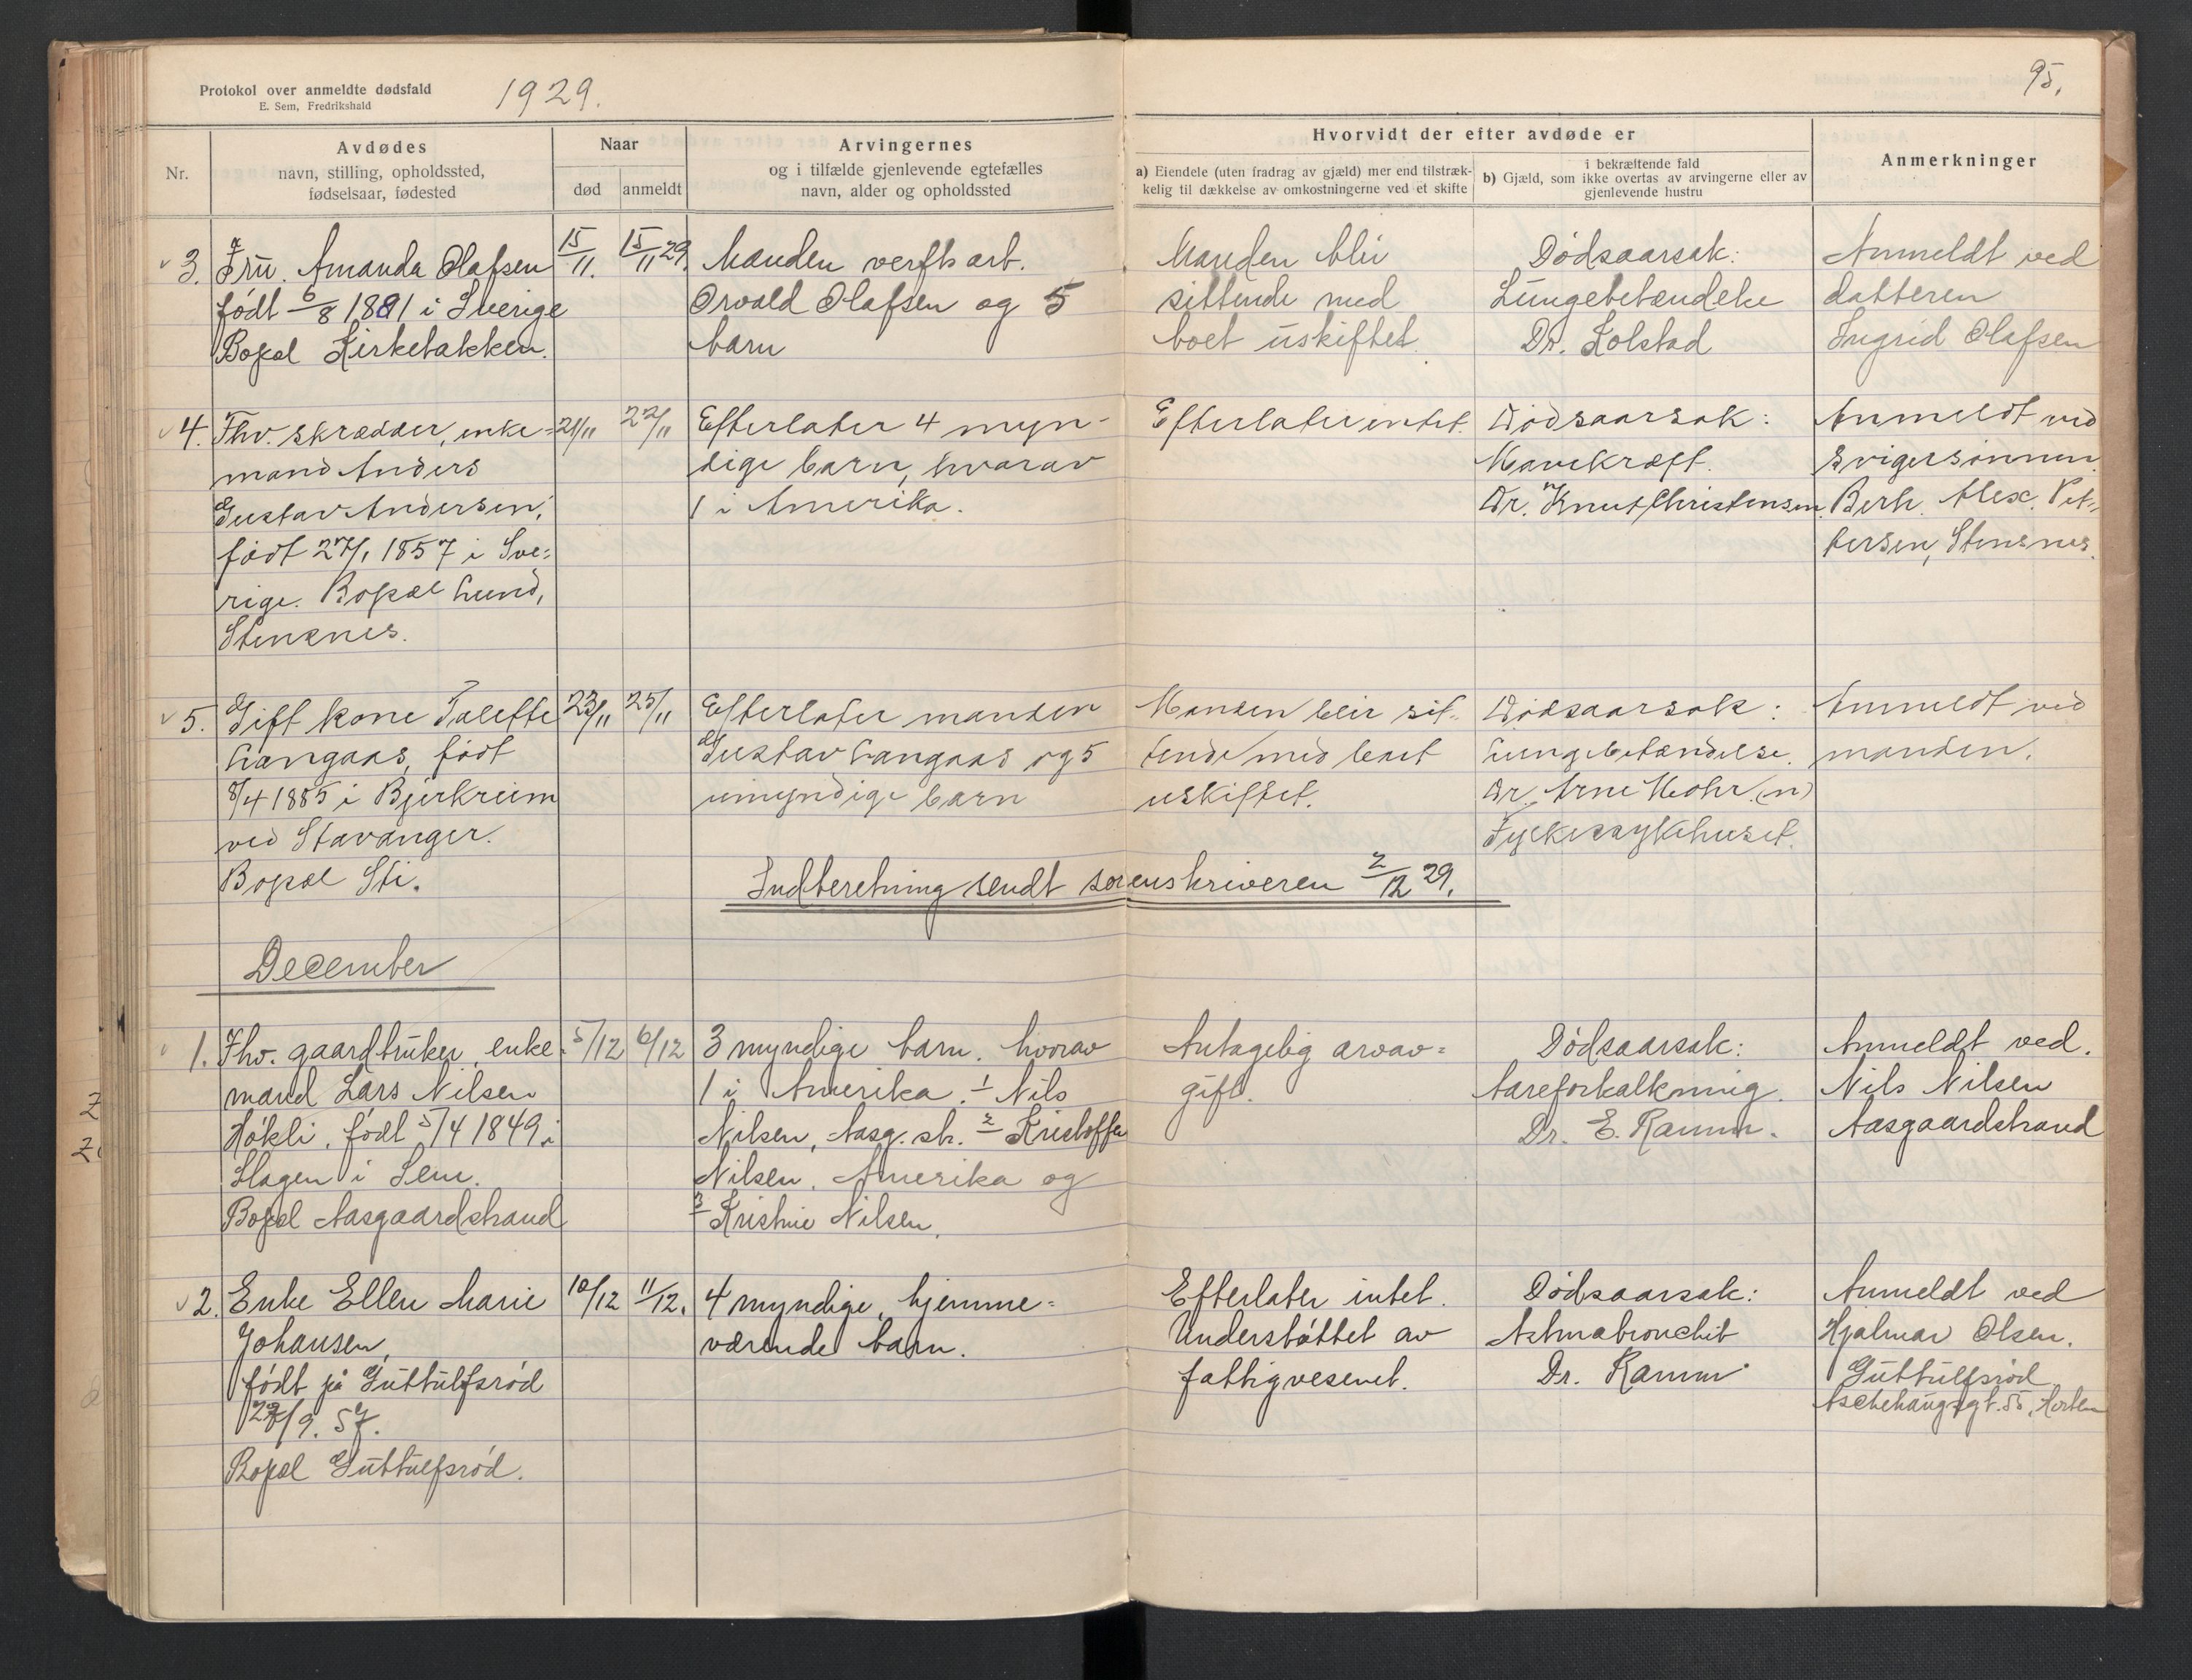 Protokol over anmeldte dødsfald
E. Sem, Fredrikshald
1929.
95.
Nr.
Avdødes
navn, stilling, opholdssted,
fødselsaar, fødested
Naar
død
anmeldt
Arvingernes
og i tilfælde gjenlevende egtefælles
navn, alder og opholdssted
Hvorvidt der efter avdøde er
a) Eiendele (uten fradrag av gjæld) mer end tilstræk-
kelig til dækkelse av omkostningerne ved et skifte
i bekræftende fald
b) Gjæld, som ikke overtas av arvingerne eller av
gjenlevende hustru
Anmerkninger
3.
Fru. Amanda Olafsen
født 6/8 1881 i Sverige
Bopæl Kirkebakken.
15/11.
15/11 29.
Manden verftsarb.
Osvald Olafsen og 5
barn
Manden blir
sittende med
boet uskiftet.
Dødsaarsak:
Lungebetændelse
Dr. Kolstad
Anmeldt ved
datteren
Ingrid Olafsen
4.
Fhv. skrædder, enke-
mand Anders
Gustav Andersen,
født 27/1 1857 i Sve-
rige. Bopæl Lund,
Stensnes.
21/11
22/11
Efterlater 4 myn-
dige barn, hvorav
1 i Amerika.
Efterlater intet.
Dødsaarsak:
Mavekræft.
Dr. Knut Christensen.
Anmeldt ved
svigersønnen
Berh. Alex. Pet-
tersen, Stensnes.
5.
Gift kone Talette
Langaas, født
8/4 1885 i Bjerkreim
ved Stavanger.
Bopæl Sti.
23/11
25/11
Efterlater manden
Gustav Langaas og 5
umyndige barn
Manden blir sit-
tende med boet
uskiftet.
Dødsaarsak:
Lungebetændelse.
Dr. Arne Mohr (n)
Fylkessykehuset.
Anmeldt ved
manden.
Indberetning sendt sorenskriveren 2/12 29.
December
1.
Fhv. gaardbruker, enke-
mand Lars Nilsen
Høkli, født 5/4 1849 i
Slagen i Sem.
Bopæl Aasgaardstrand
5/12
6/12
3 myndige barn. hvorav
1 i Amerika. 1 Nils
Nilsen, Aasg.str. 2 Kristoffer
Nilsen, Amerika og
3 Kristine Nilsen.
Antagelig arvav-
gift.
Dødsaarsak:
Aareforkalkning.
Dr. E. Ramm.
Anmeldt ved.
Nils Nilsen
Aasgaardstrand
2.
Enke Ellen Marie
Johansen,
født på Guttulfsrød
22/9. 57.
Bopæl Guttulfsrød.
10/12
11/12.
4 myndige, hjemme-
værende barn.
Efterlater intet.
Understøttet av
fattigvesenet.
Dødsaarsak:
Astmabronchit
Dr. Ramm
Anmeldt ved
Hjalmar Olsen.
Guttulfsrød
Aschehougsgt. 55, Horten